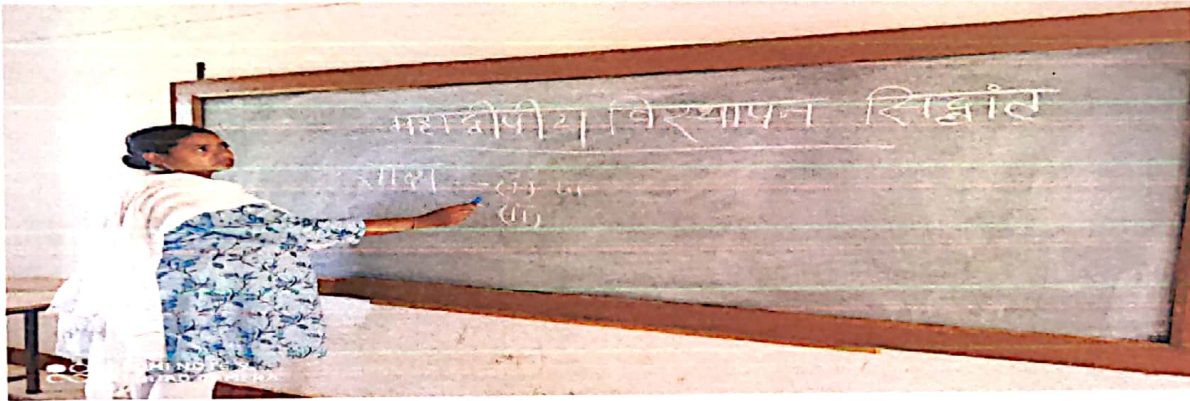 महाद्वीपीय विस्थापन सिद्धांत
साक्ष्य - (i)
(ii)